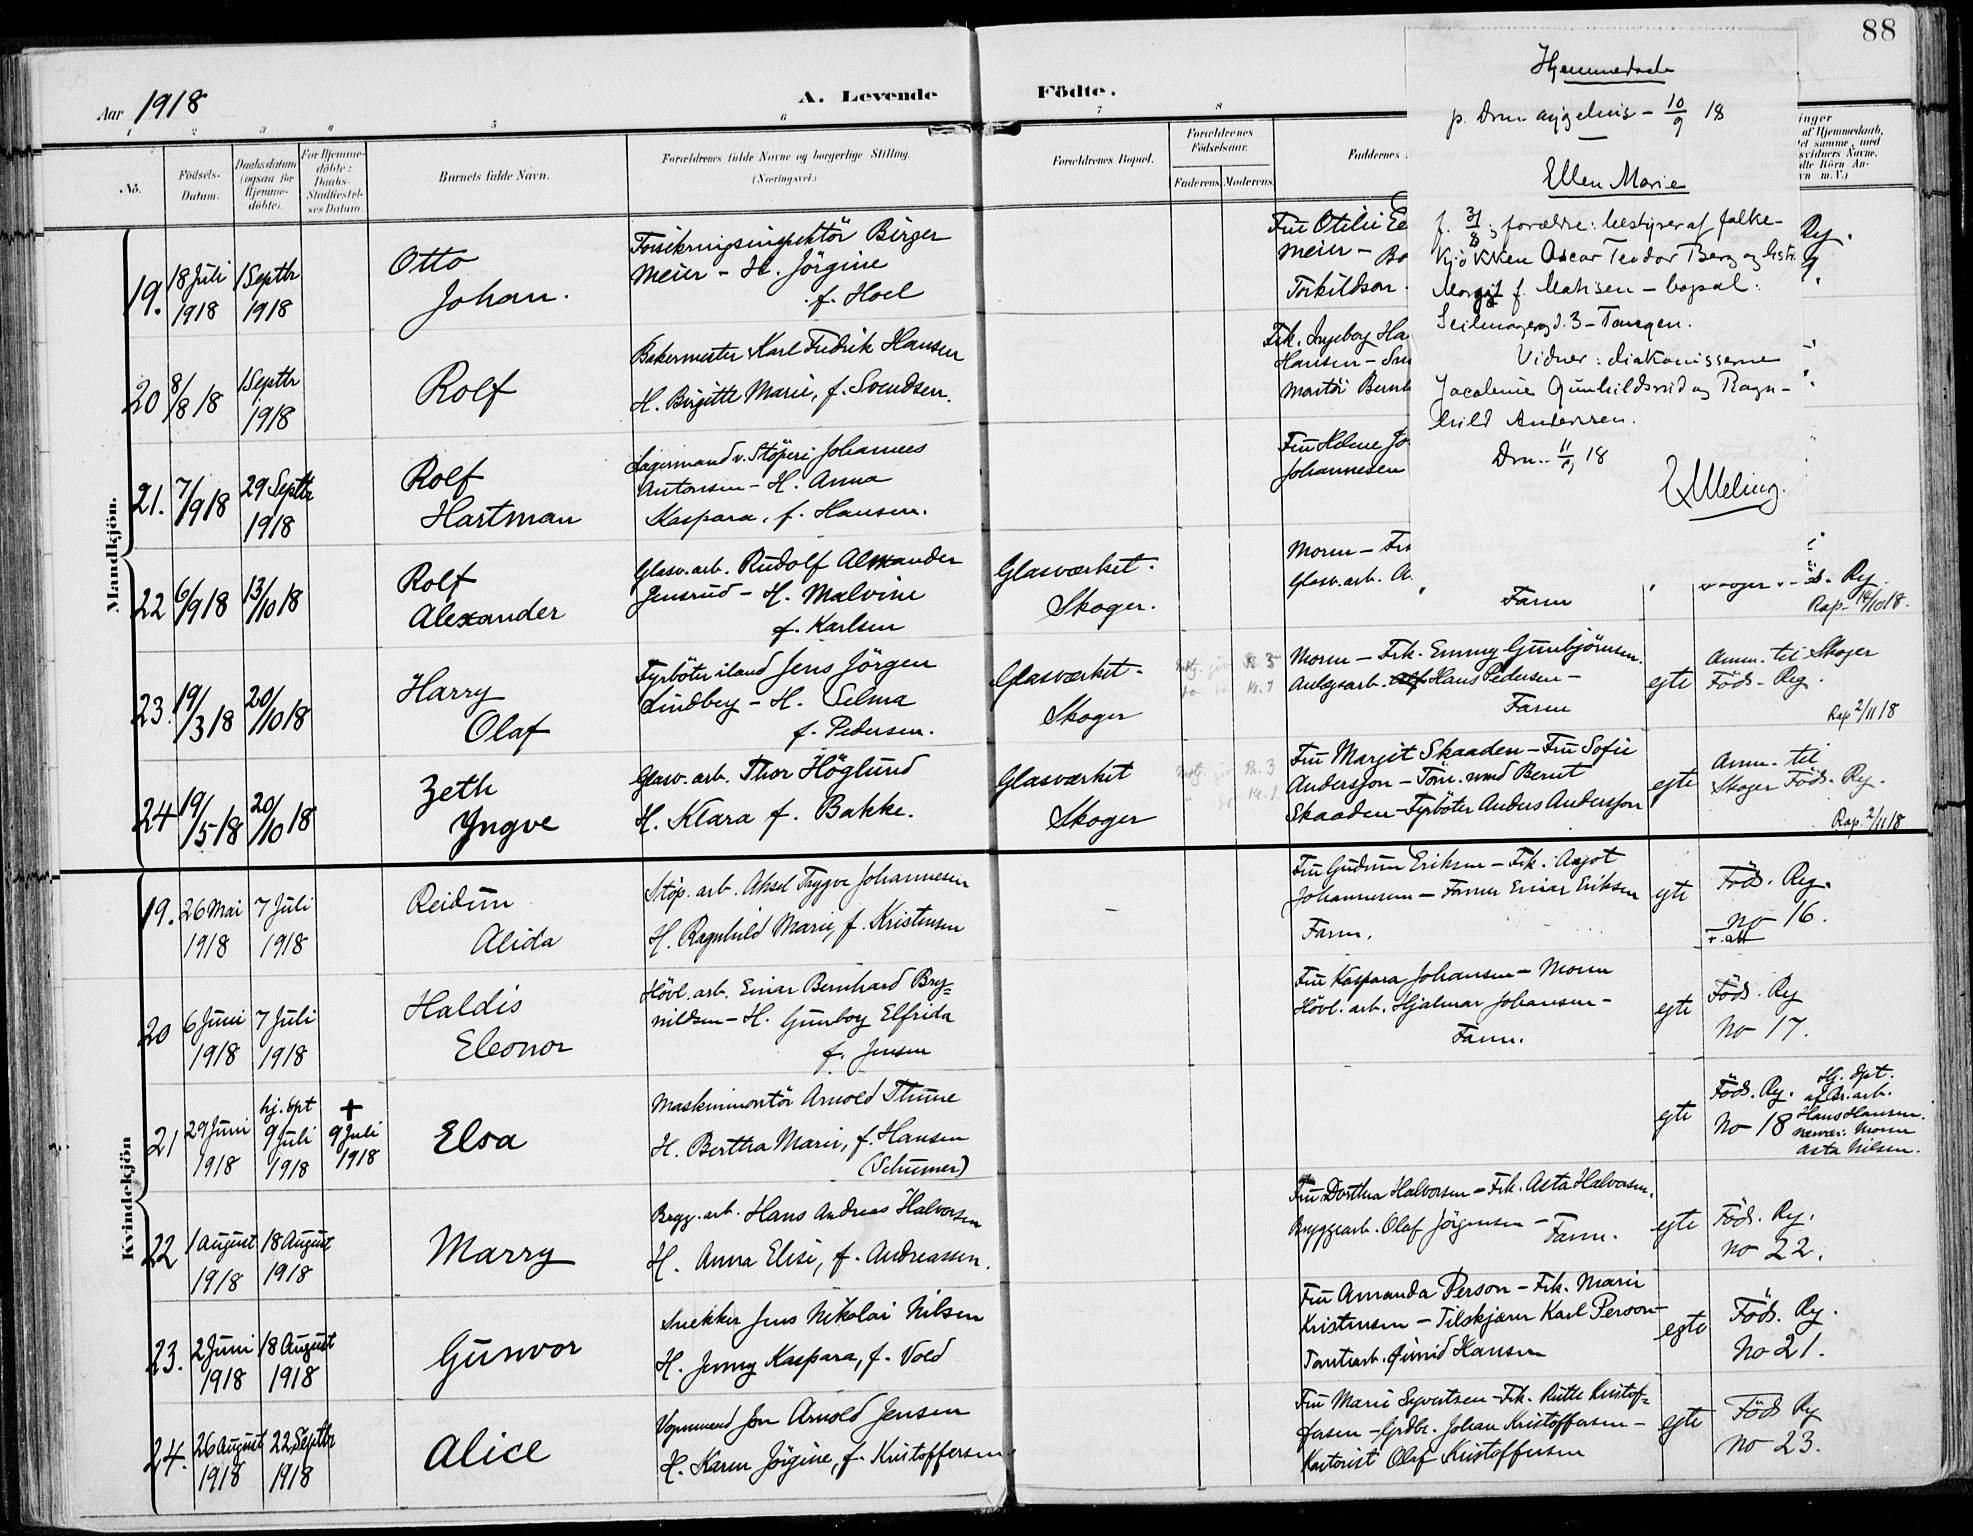 88
Aar 1918
A. Levende Födte.
1 2 3 4 5 6 7 8
No.
Födsels-Datum.
Daabsdatum (ogsaa for Hjemme-döbte).
For Hjemme-döbte: Daabs-Stadfæstel-ses Datum.
Barnets fulde Navn.
Forældrenes fulde Navne og borgerlige Stilling. (Næringsvei.)
Forældrenes Bopæl.
Forældrenes Födselsaar.
Faderens. Moderens.
Faddernes
Mandkjön.
19. 18 Juli 1918 1 Septbr 1918
Otto Johan.
Forsikringsinspektör Birger
Meier - H. Jörgine
f. Hoel
Fru Otilie
Meier -
Torkildson
20 8/8 18 1 Septbr 1918
Rolf
Bakermester Karl Fredrik Hansen
H. Birgitte Marie, f. Svendsen.
Frk. Ingeborg Ha
Hansen -
Montör Bernh
21. 7/9 18 29 Septbr 1918
Rolf Hartman
Lagermand v. Stöperi Johannes
Antonsen - H. Anna
Kaspara, f. Hansen.
Fru Helene Jo
Johannesen
22 6/9 18 13/10 18
Rolf Alexander
Glasv. arb. Rudolf Alexander
Jensrud - H. Malvine
f. Karlsen
Glasværket.
Skoger.
Moren - Fr
Glasv. arb. A.
Faren
Rap. 14/10 18.
23. 19/3 18 20/10 18
Harry Olaf
Fyrböter iland Jens Jörgen
Lindberg - H. Selma
f. Pedersen.
Glasværket.
Skoger
Moren - Frk. Emmy Gunbjörnsen.
Anlegsarb. Hans Pedersen -
Faren
egte
Anm. til Skoger
Föds. Reg.
Rap 2/11 18
24 19/5 18 20/10 18
Zeth Yngve
Glasv. arb. Thor Höglund
H. Klara f. Bakke.
Glasværket
Skoger
Fru Margit Skaaden - Fru Sofie
Andersson - Berut
Skaaden - Fyrböter Anders Andersson
egte
Anm. til
Skoger Föds. Reg.
Rap. 2/11 18
Kvindekjön
19. 26 Mai 1918 7 Juli 1918
Reidun Alida
Stöp. arb. Aksel Trygve Johannesen
H. Ragnhild Marie, f. Kristensen
Fru Gudrun Eriksen - Frk. Aagot
Johannesen - Former Einar Eriksen
Faren.
egte
Föds. Reg.
no 16.
20 6 Juni 1918 7 Juli 1918
Haldis Eleonor
Hövl. arb. Einar Bernhard Bry-
nildsen - H. Gunborg Elfrida
f. Jensen
Fru Kaspara Johansen - Moren
Hövl. arb. Hjalmar Johansen -
Faren.
egte
Föds. Reg
No 17.
21 29 Juni 1918 hj. döpt 9 Juli 1918 + 9 Juli 1918
Elsa
Maskinmontör Arnold Thune
H. Berthea Marie, f. Hansen
(Schumer)
egte
Föds. Reg.
No 18
Hj. döpt.
af Br. arb.
Hans Hansen.
nærvær: Moren
Asta Nilsen.
22 1 August 1918 18 August 1918
Marry
Brygg. arb. Hans Andreas Halvorsen
H. Anna Elise, f. Andreassen.
Fru Dorthea Halvorsen - Frk. Asta Halvorsen.
Bryggearb. Olaf Jörgensen - Faren.
egte
Föds. Reg.
no 22.
23. 2 Juni 1918 18 August 1918
Gunvor
Snekker Jens Nikolai Nilsen
H. Jenny Kaspara, f. Vold
Fru Amanda Person - Frk. Marie
Kristensen - Tilskjærer Karl Person -
Tomtearb. Hansen
egte
Föds. Reg.
No 21.
24. 26 August 1918 22 Septbr 1918
Alice
Vognmand Jon Arnold Jensen
H. Karen Jörgine, f. Kristoffersen
Fru Marie Syvertsen - Frk. Ruth Kristof-
fersen - Grdbr. Johan Kristoffersen -
Kontorist Olaf Kristoffersen
egte
Föds Reg
No 23.
Hjemmedaab
p. Drm sygehus - 10/9 18
Ellen Marie
f. 31/8; forældre: bestyrer af folke-
kjøkken Oscar Teodor Berg og hstr.
Margit f. Mathisen - bopæl:
Seilmagergd. 3 - Tangen.
Vidner: diakonisserne
Jacobine Gunhildsrud og Ragn-
hild Andersen.
Drm. 11/9 18
E Meling.